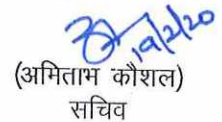 19/2/20
(अमिताभ कौशल)
सचिव